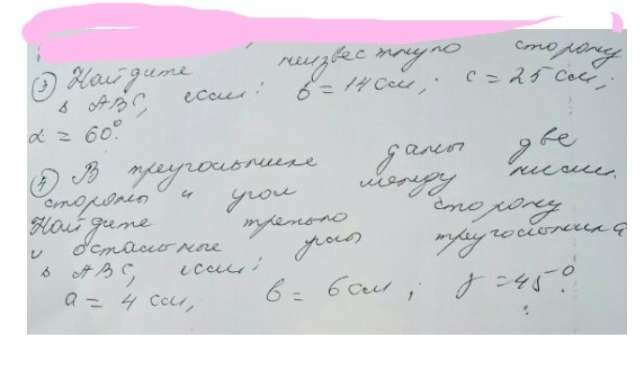 3) Найдите неизвестную сторону
в ABC, если: b = 14 см; c = 25 см;
α = 60°.
4) В треугольнике даны две
стороны и угол между ними.
Найдите третью сторону
и остальные углы треугольника
в ABC, если:
a = 4 см, b = 6 см; γ = 45°.